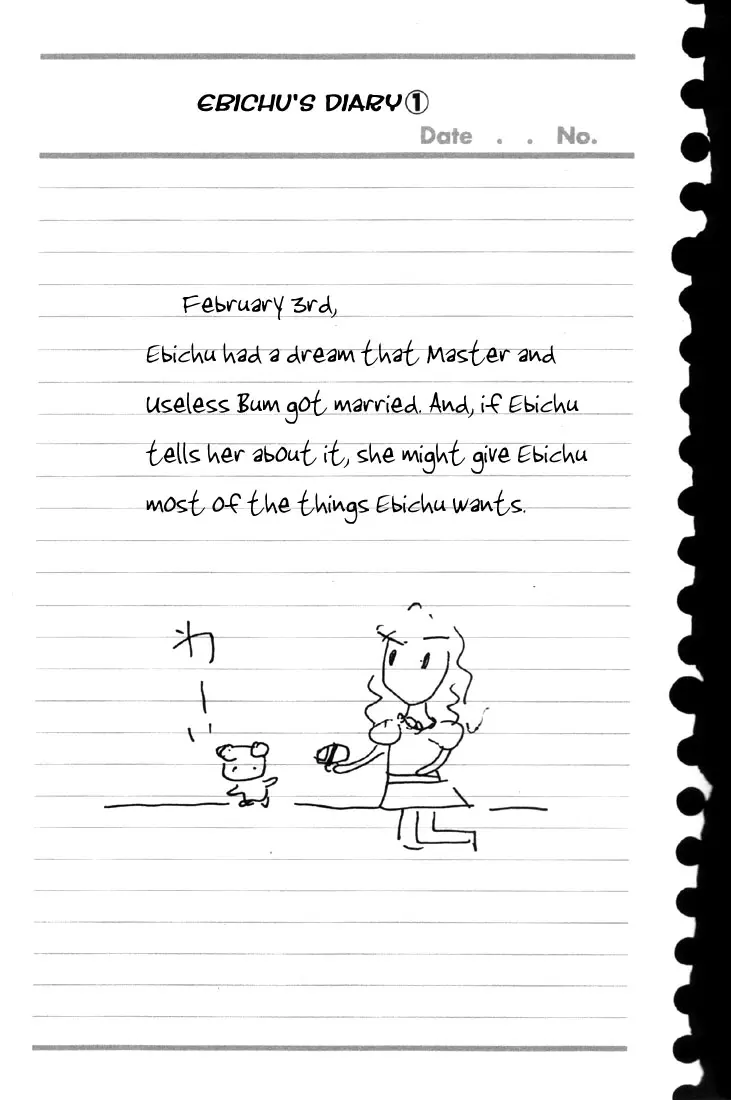 EBICHU'S DIARY①
Date . . No.
February 3rd,
Ebichu had a dream that Master and
Useless Bum got married. And, if Ebichu
tells her about it, she might give Ebichu
most of the things Ebichu wants.
わーい